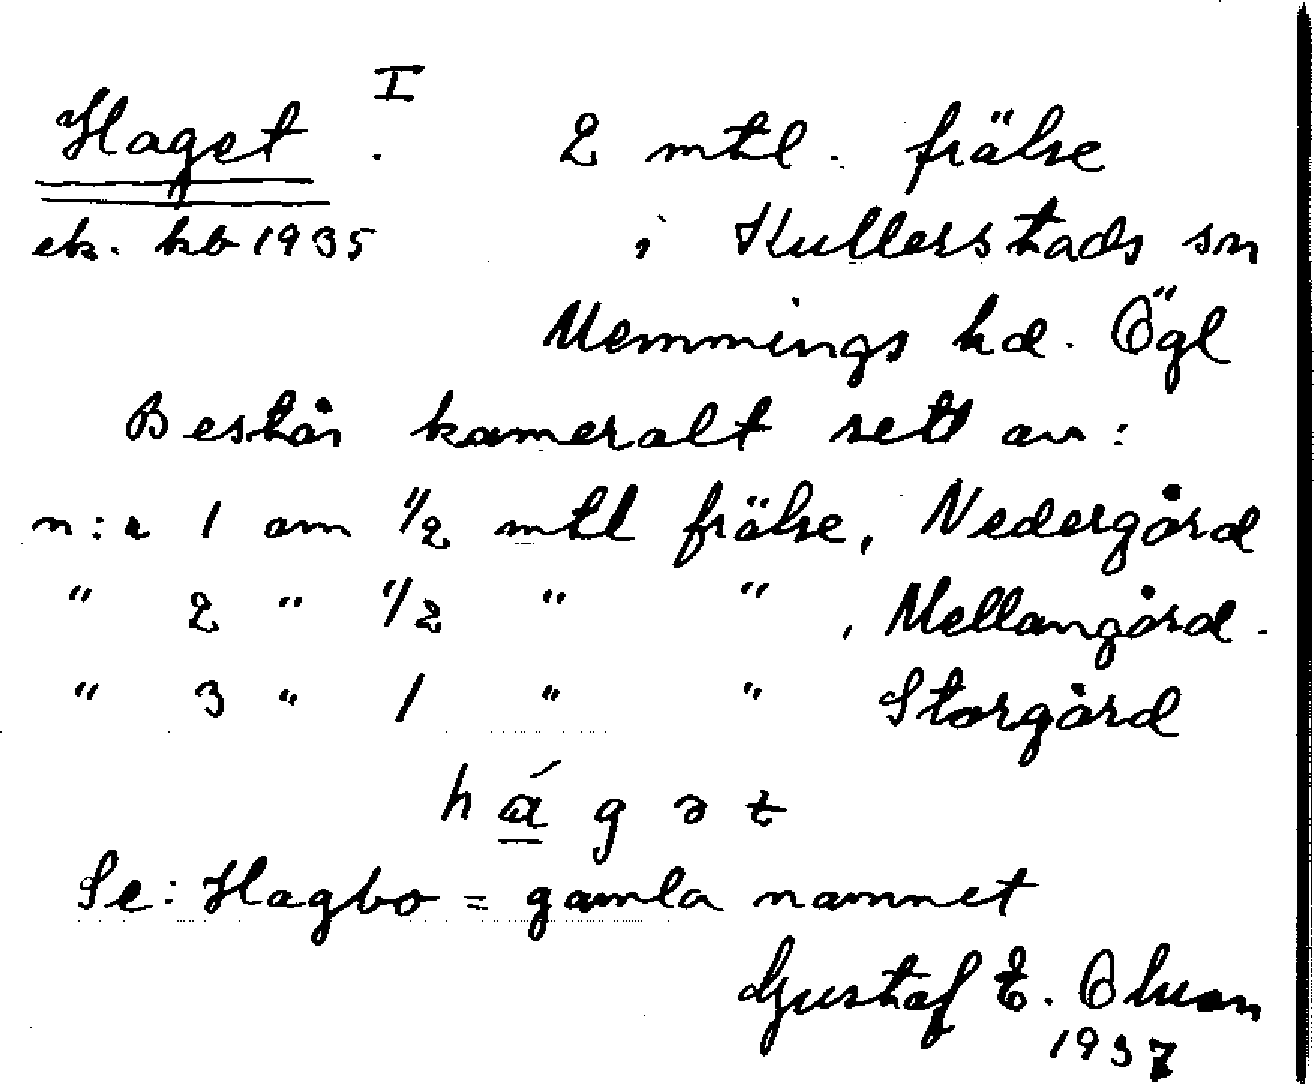 Haget I . 2 mtl. frälse
ek. kb 1935 i Kullerstads sn
Memmings hd. Ögl
Består kameralt sett av:
n:r 1 om 1/2 mtl frälse, Nedergård
" 2 " 1/2 " " , Mellangård.
" 3 " 1 " " Storgård
h á g ə t
Se: Hagbo = gamla namnet
Gustaf E. Olsson
1937